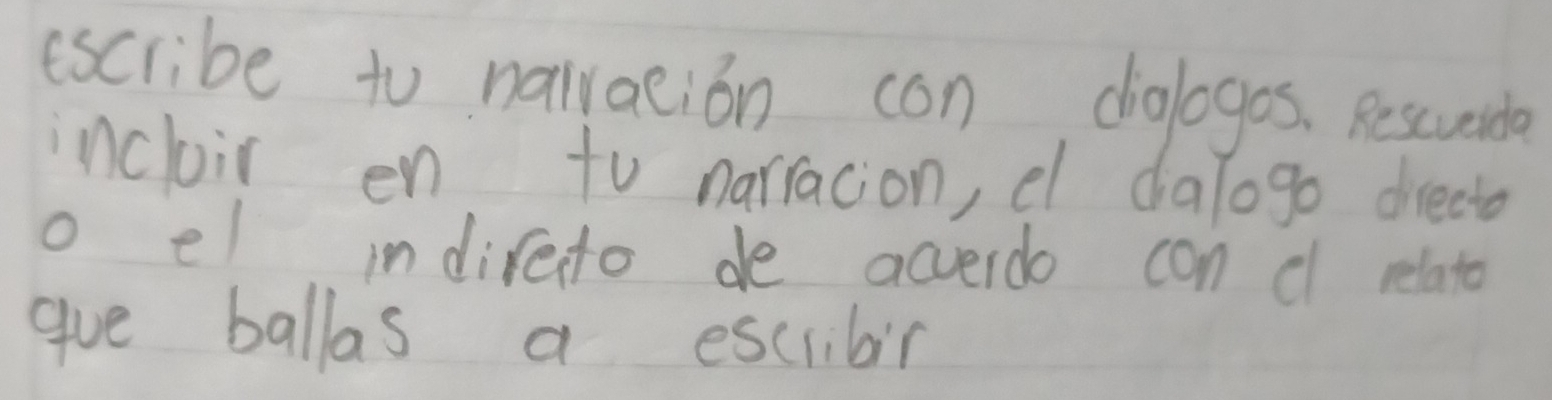 escribe tu narración con dialogos. Rescuerda
incluir en tu narracion, el dialogo directo
o el indirecto de acuerdo con el relato
que ballas a escribir